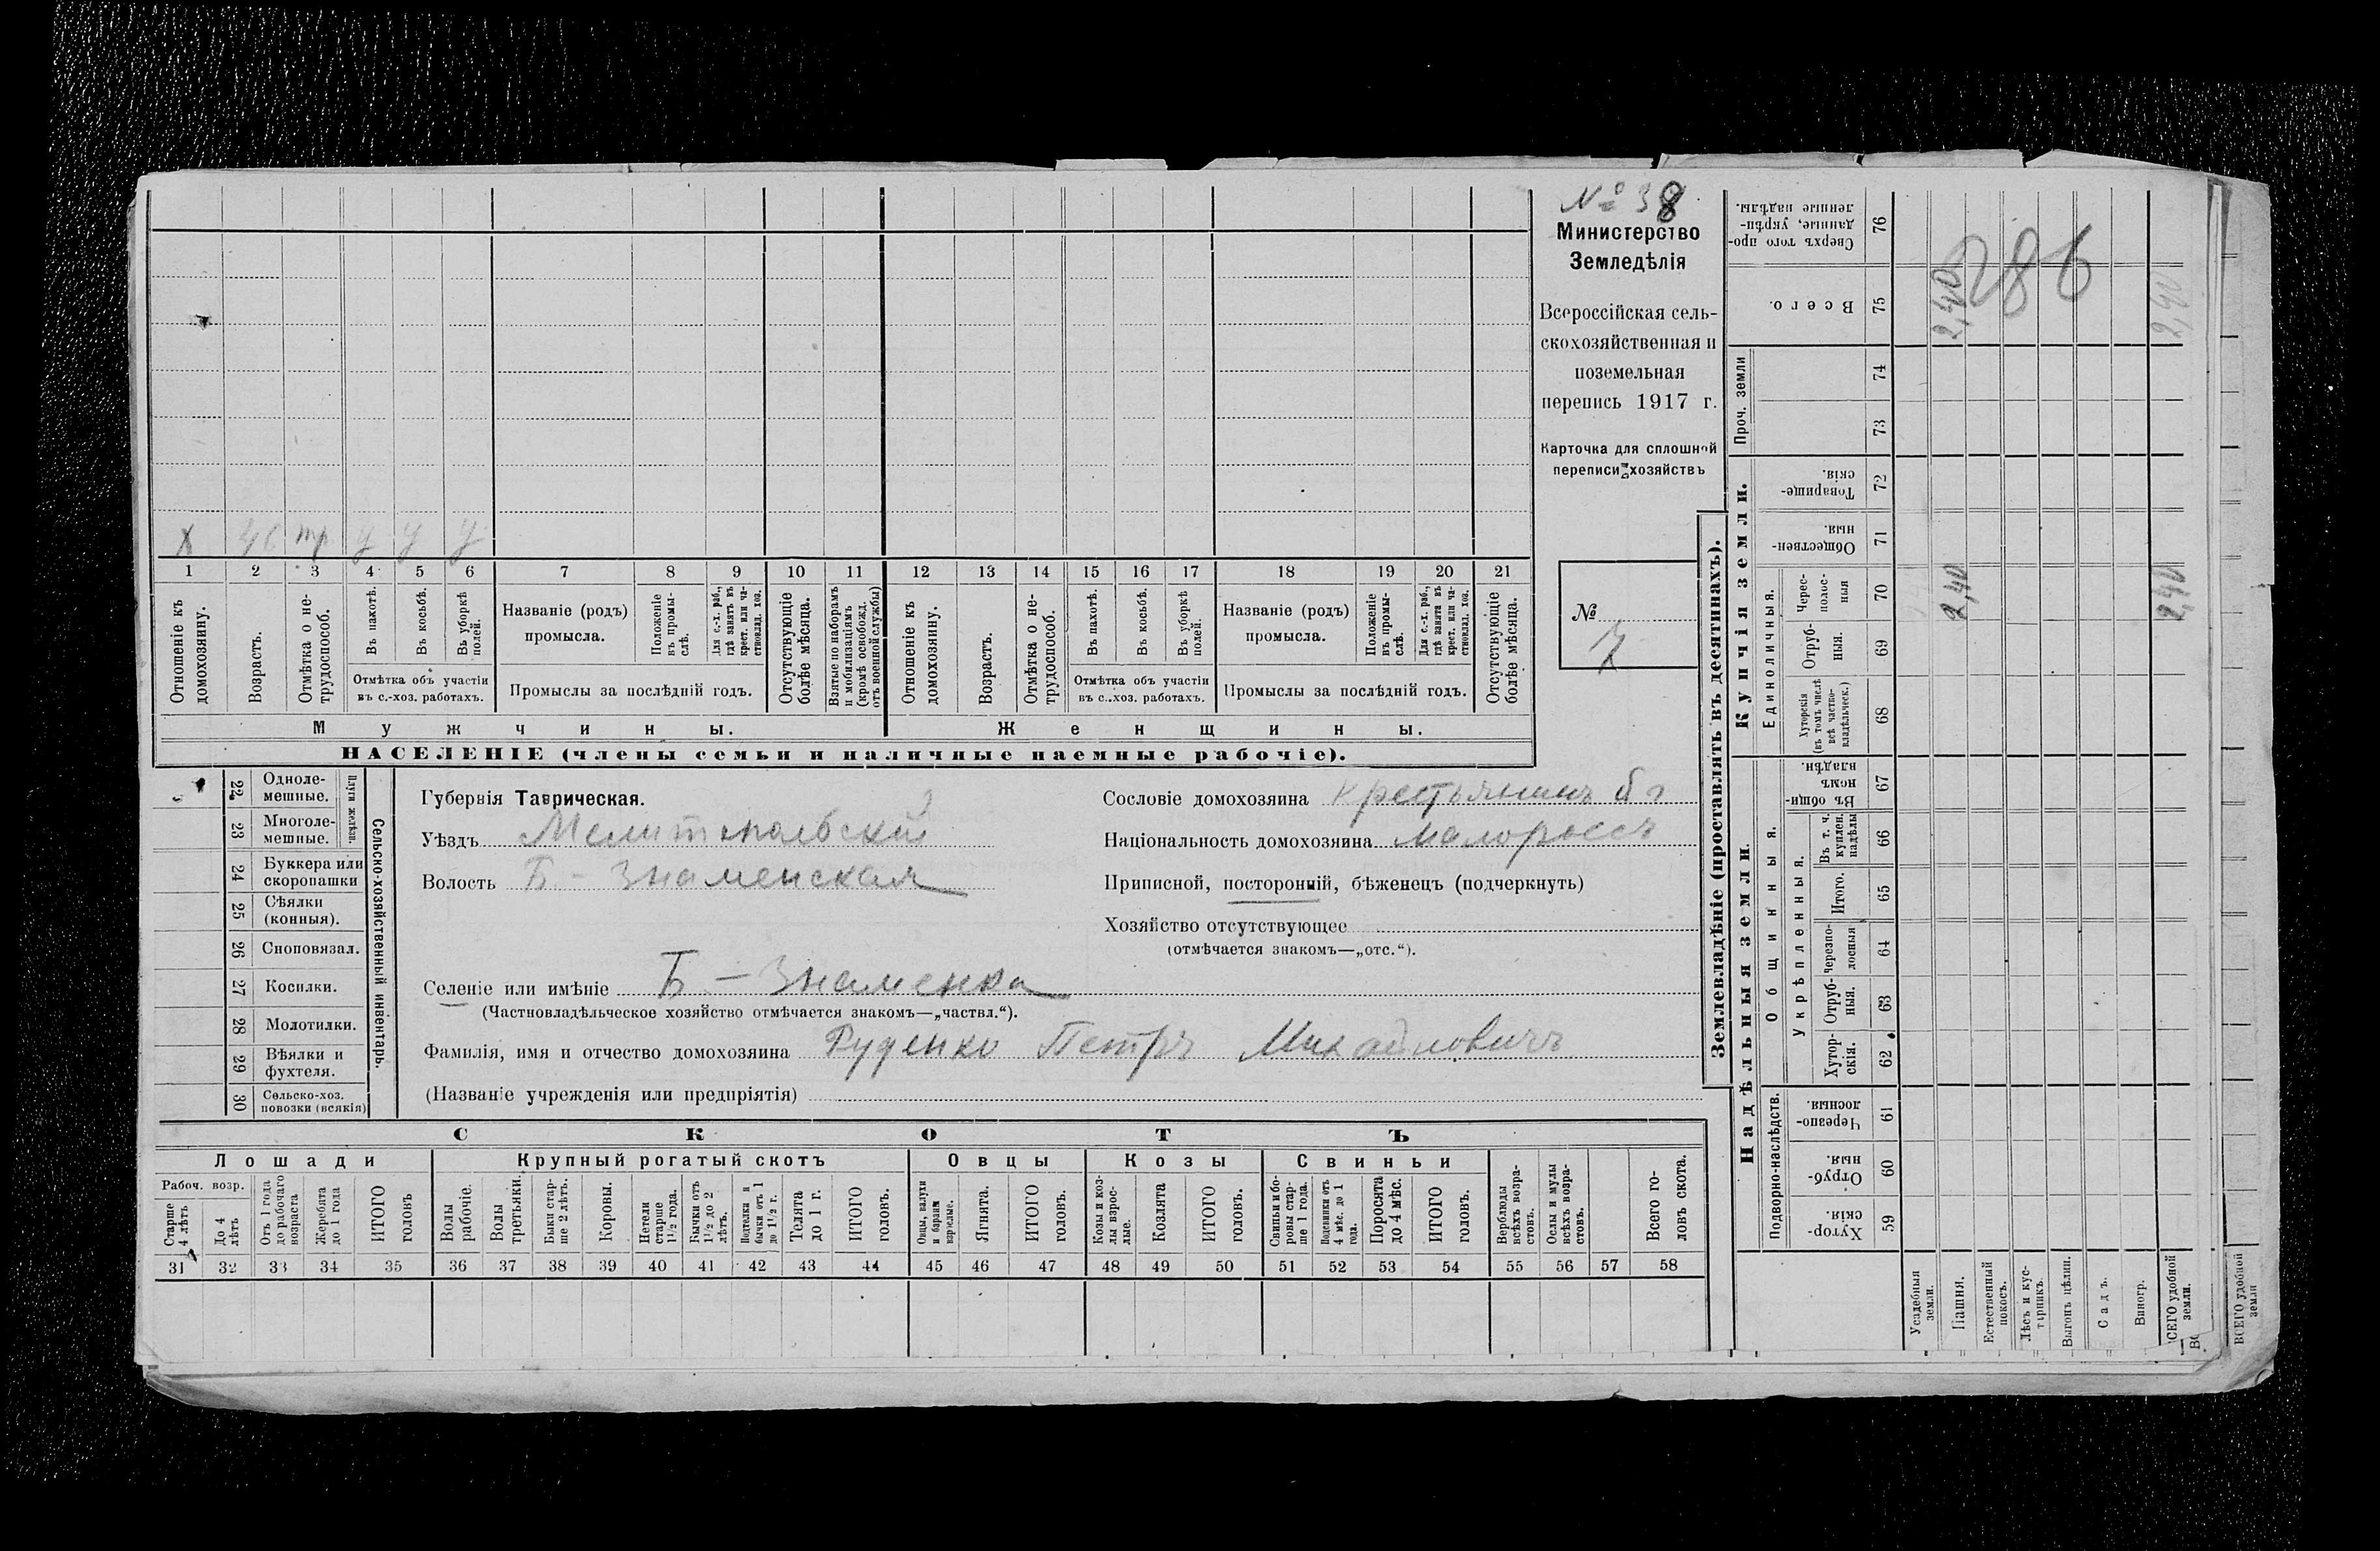 № 38
Министерство
Земледѣлія
Всероссійская сель-
скохозяйственная и
поземельная
перепись 1917 г.
Карточка для сплошной
переписи хозяйствъ
№
х тр у у у
1 2 3 4 5 6 7 8 9 10 11 12 13 14 15 16 17 18 19 20 21
Отношеніе къ домохозяину.
Возрастъ.
Отмѣтка о не-трудоспособ.
Въ пахотѣ.
Въ косьбѣ.
Въ уборкѣ полей.
Отмѣтка объ участіи
въ с.-хоз. работахъ.
Названіе (родъ)
промысла.
Положеніе въ промы-слѣ.
Для с.-х. раб., гдѣ занятъ въ крест. или ча-стновлад. хоз.
Промыслы за послѣдній годъ.
Отсутствующіе болѣе мѣсяца.
Взятые по наборамъ и мобилизаціямъ (кромѣ освобожд. отъ военной службы)
Отношеніе къ домохозяину.
Возрастъ.
Отмѣтка о не-трудоспособ.
Въ пахотѣ.
Въ косьбѣ.
Въ уборкѣ полей.
Отмѣтка объ участіи
въ с.-хоз. работахъ.
Названіе (родъ)
промысла.
Положеніе въ промы-слѣ.
Для с.-х. раб., гдѣ занята въ крест. или ча-стновлад. хоз.
Промыслы за послѣдній годъ.
Отсутствующіе болѣе мѣсяца.
Мужчины. Женщины.
НАСЕЛЕНІЕ (члены семьи и наличные наемные рабочіе).
Сельско-хозяйственный инвентарь.
Плуги желѣзн.
22 Одноле-мешные.
23 Многоле-мешные.
24 Буккера или скоропашки
25 Сѣялки (конныя).
26 Сноповязал.
27 Косилки.
28 Молотилки.
29 Вѣялки и фухтеля.
30 Сельско-хоз. повозки (всякія)
Губернія Таврическая.
Уѣздъ Мелитопольскій
Волость Б.-Знаменская
Селеніе или имѣніе Б.-Знаменка
(Частновладѣльческое хозяйство отмѣчается знакомъ—„частвл.“).
Фамилія, имя и отчество домохозяина Руденко Петръ Михайловичъ
(Названіе учрежденія или предпріятія)
Сословіе домохозяина крестьянинъ
Національность домохозяина малороссъ
Приписной, посторонній, бѣженецъ (подчеркнуть)
Хозяйство отсутствующее
(отмѣчается знакомъ—„отс.“).
СКОТЪ
Лошади Крупный рогатый скотъ Овцы Козы Свиньи
Рабоч. возр.
Старше 4 лѣтъ
До 4 лѣтъ
Отъ 1 года до рабочаго возраста
Жеребята до 1 года
ИТОГО головъ
Волы рабочіе.
Волы третьяки.
Быки стар-ше 2 лѣтъ.
Коровы.
Нетели старше 1½ года.
Бычки отъ 1½ до 2 лѣтъ.
Подтелки и бычки отъ 1 до 1½ г.
Телята до 1 г.
ИТОГО головъ.
Овцы, валухи и бараны взрослые.
Ягнята.
ИТОГО головъ.
Козы и коз-лы взрос-лые.
Козлята
ИТОГО головъ.
Свиньи и бо-ровы стар-ше 1 года.
Подсвинки отъ 4 мѣс. до 1 года.
Поросята до 4 мѣс.
ИТОГО головъ.
Верблюды всѣхъ возра-стовъ.
Ослы и мулы всѣхъ возра-стовъ.
Всего го-ловъ скота.
31 32 33 34 35 36 37 38 39 40 41 42 43 44 45 46 47 48 49 50 51 52 53 54 55 56 57 58
Землевладѣніе (проставлять въ десятинахъ).
Сверхъ того про-данные, укрѣп-ленные надѣлы. 76
Всего. 75 2,40 2,40
286
Проч. земли
74
73
Купчія земли.
Товарище-скія. 72
Обществен-ныя. 71
Единоличныя.
Черес-полос-ныя 70 2,40 2,40
Отруб-ныя. 69
Хуторскія (въ томъ числѣ всѣ частно-владѣльческ.) 68
Надѣльныя земли.
Общинныя.
Въ общи-номъ владѣн. 67
Укрѣпленныя.
Въ т. ч. куплен. надѣлы 66
Итого. 65
Черезпо-лосныя 64
Отруб-ныя. 63
Хутор-скія. 62
Подворно-наслѣдств.
Черезпо-лосныя. 61
Отруб-ныя. 60
Хутор-скія. 59
Усадебныя земли.
Пашня.
Естественный покосъ.
Лѣсъ и кус-тарникъ.
Выгонъ цѣлин.
Садъ.
Виногр.
ВСЕГО удобной земли.
ВСЕГО удобной земли